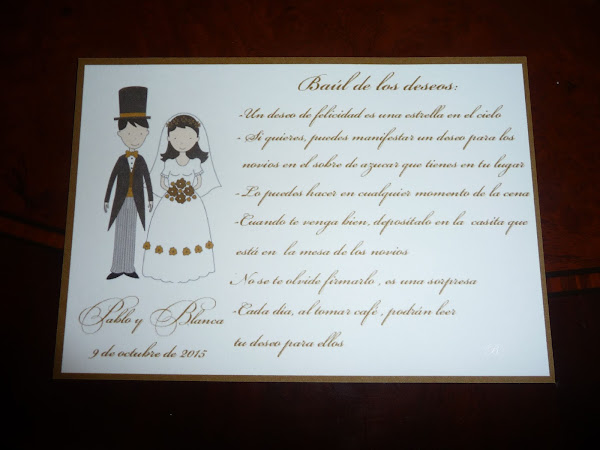 Baúl de los deseos:
-Un deseo de felicidad es una estrella en el cielo
- Si quieres, puedes manifestar un deseo para los
novios en el sobre de azucar que tienes en tu lugar
-Lo puedes hacer en cualquier momento de la cena
-Cuando te venga bien, deposítalo en la casita que
está en la mesa de los novios
No se te olvide firmarlo , es una sorpresa
-Cada día, al tomar café , podrán leer
tu deseo para ellos
Pablo y Blanca
9 de octubre de 2015